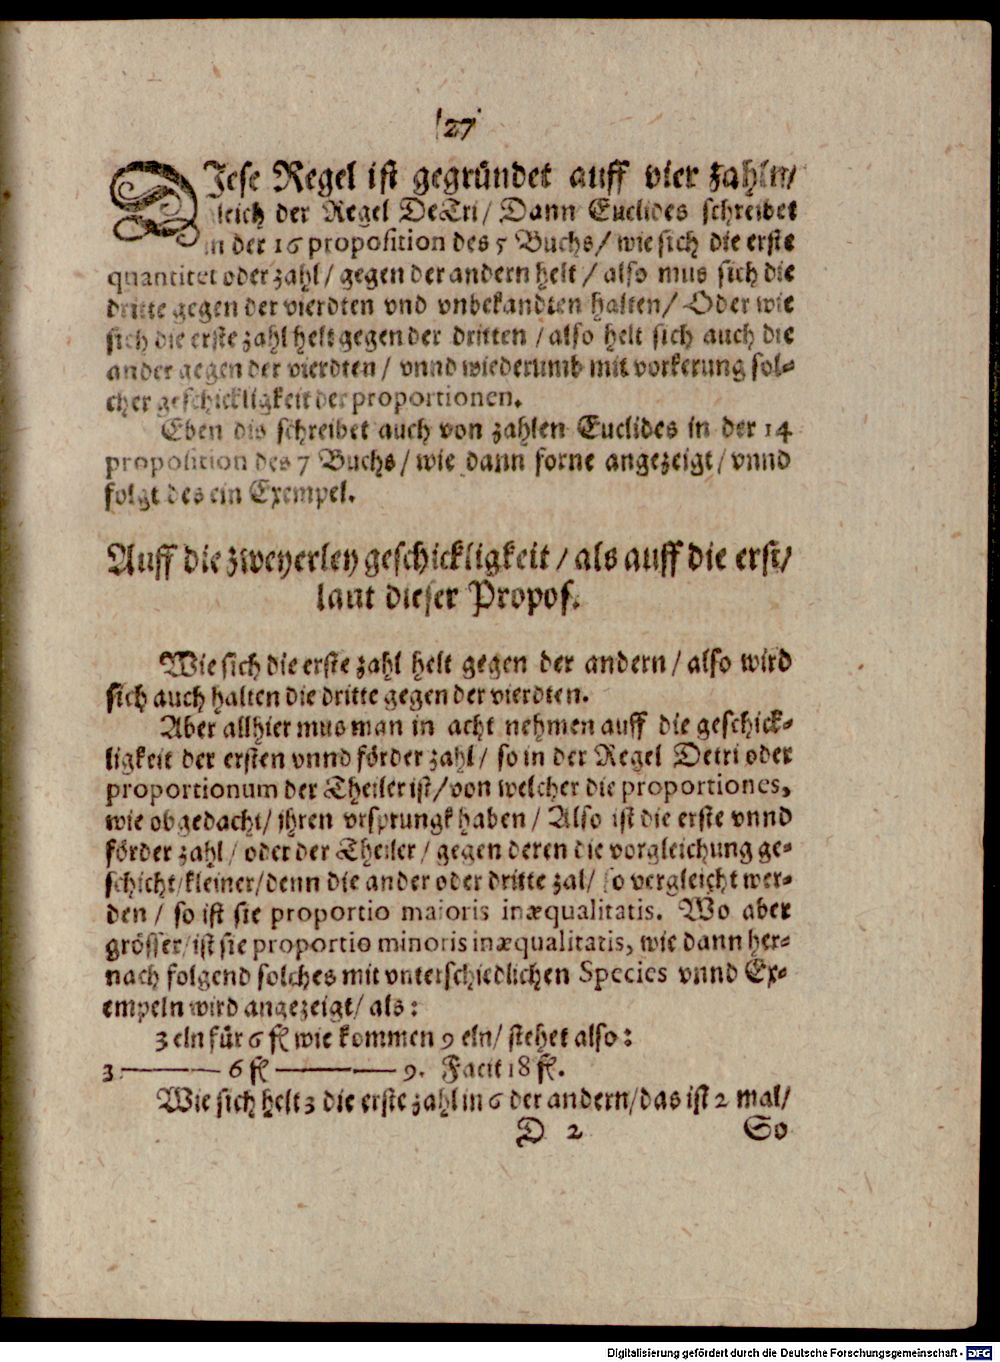 27
DIese Regel ist gegründet auff vier zahln/
gleich der Regel DeTri/ Dann Euclides schreibet
in der 16 proposition des 5 Buchs/ wie sich die erste
quantitet oder zahl/ gegen der andern helt/ also mus sich die
dritte gegen der vierdten vnd vnbekandten halten/ Oder wie
sich die erste zahl helt gegen der dritten/ also helt sich auch die
ander gegen der vierdten/ vnnd wiederumb mit vorkerung sol-
cher geschickligkeit der proportionen.
Eben dis schreibet auch von zahlen Euclides in der 14
proposition des 7 Buchs/ wie dann forne angezeigt/ vnnd
folgt des ein Exempel.
Auff die zweyerley geschickligkeit/ als auff die erst/
laut dieser Propos.
Wie sich die erste zahl helt gegen der andern/ also wird
sich auch halten die dritte gegen der vierdten.
Aber allhier mus man in acht nehmen auff die geschick-
ligkeit der ersten vnnd förder zahl/ so in der Regel Detri oder
proportionum der Theiler ist/ von welcher die proportiones,
wie obgedacht/ ihren vrsprungk haben/ Also ist die erste vnnd
förder zahl/ oder der Theiler/ gegen deren die vorgleichung ge-
schicht/ kleiner/ denn die ander oder dritte zal/ so vergleicht wer-
den/ so ist sie proportio maioris inæqualitatis. Wo aber
grösser/ ist sie proportio minoris inæqualitatis, wie dann her-
nach folgend solches mit vnterschiedlichen Species vnnd Ex-
empeln wird angezeigt/ als:
3 eln für 6 fl wie kommen 9 eln/ stehet also:
3.——— 6 fl ———— 9. Facit 18 fl.
Wie sich helt 3 die erste zahl in 6 der andern/ das ist 2 mal/
D 2 So
Digitalisierung gefördert durch die Deutsche Forschungsgemeinschaft - DFG